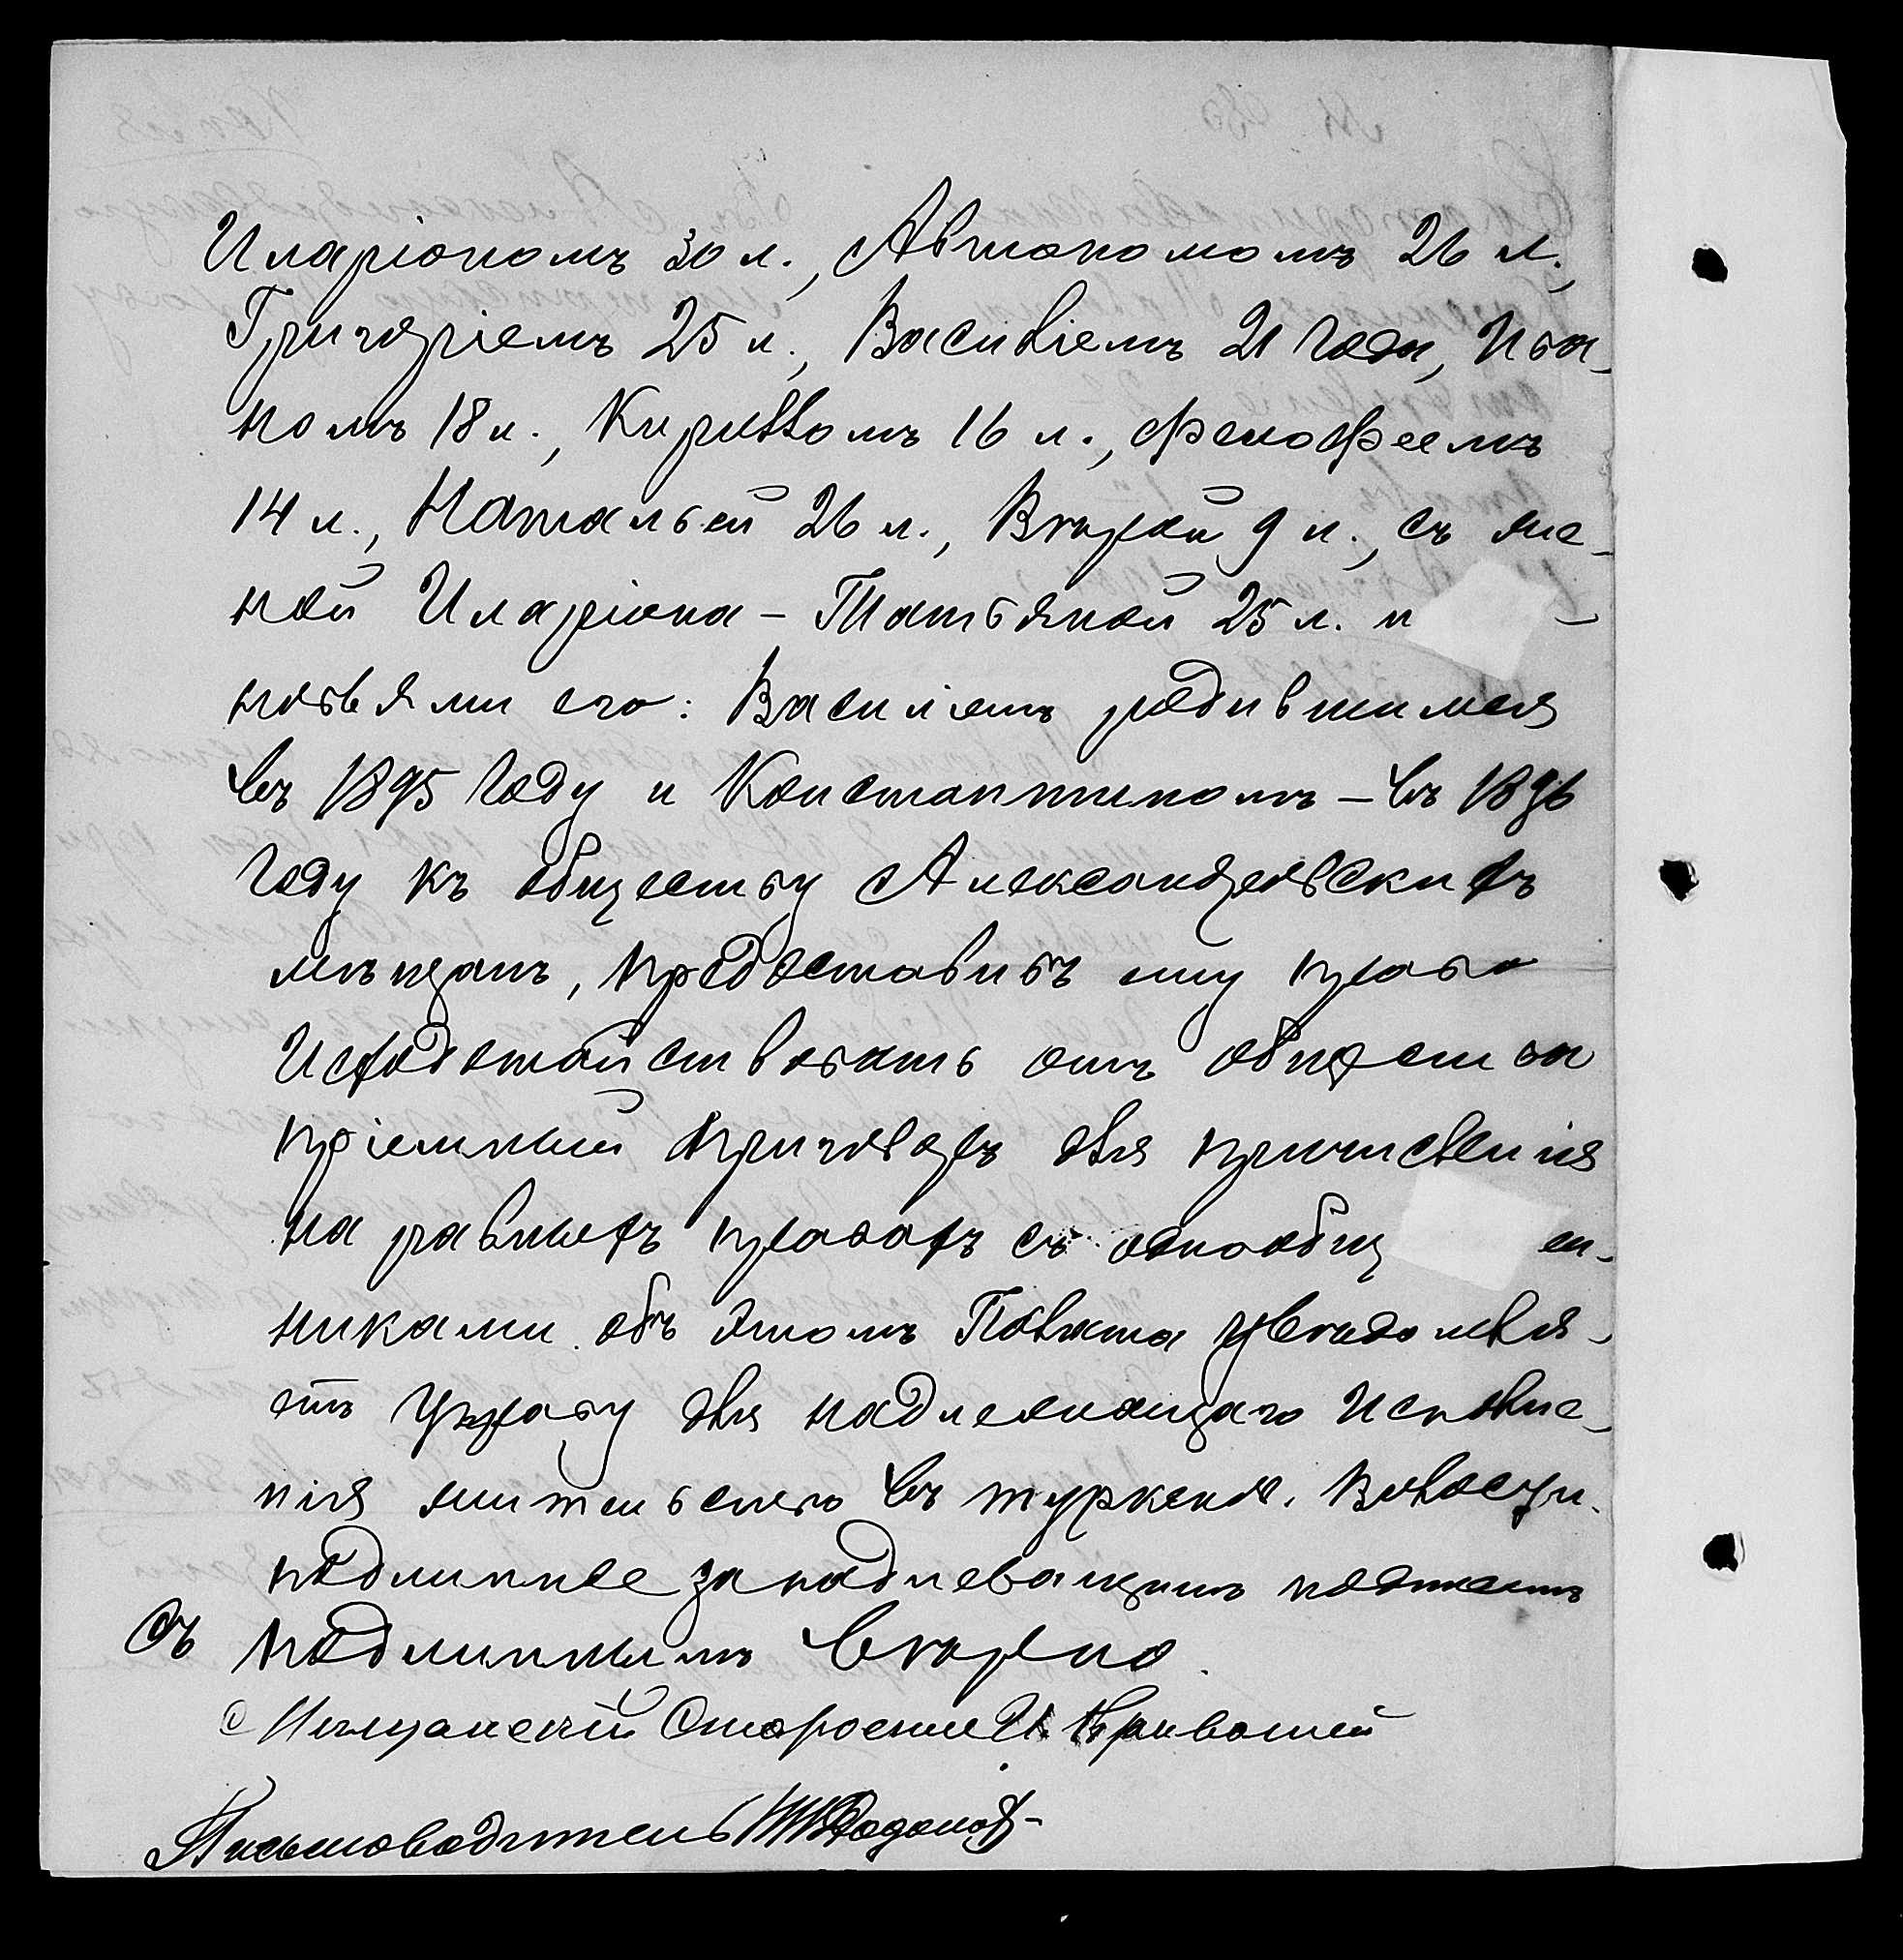 Иларіономъ 30 л., Автономомъ 26 л.,
Григоріемъ 25 л., Василіемъ 21 года, Ива-
номъ 18 л., Кирилломъ 16 л., Феофеемъ
14 л., Натальей 26 л., Вѣрой 9 л., съ же-
ной Иларіона - Татьяной 25 л. и
новьями его: Василіемъ родившимся
въ 1895 году и Константиномъ - въ 1896
году къ обществу Александровскихъ
мѣщанъ, предоставивъ ему право
исходатайствовать отъ общества
пріемный приговоръ для причисленія
на равныхъ правахъ съ однообщ ен-
никами. объ этомъ Палата увѣдомля-
етъ Управу для надлежащаго исполне-
нія жительство въ туркенов. волости.
подлинное за надлежащимъ подписомъ
Съ подлиннымъ вѣрно.
Мѣщанскій Староста И. Кривошей
Письмоводитель